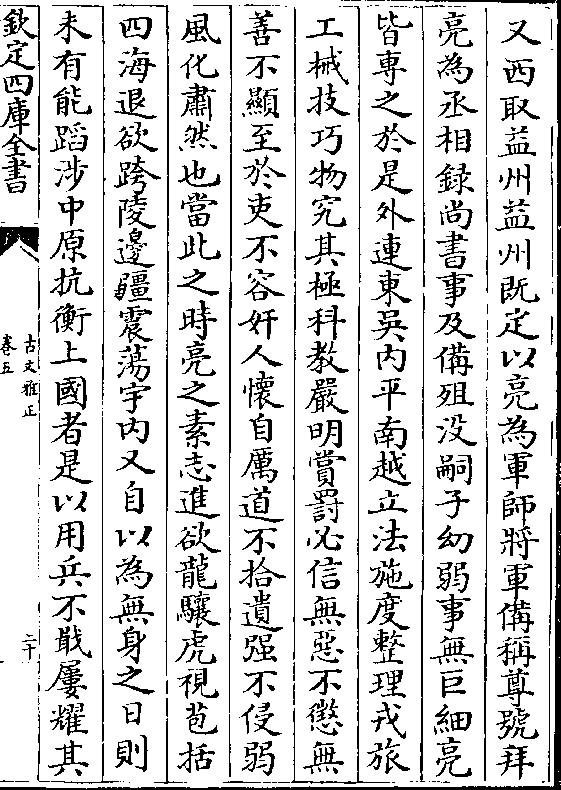 又西取益州益州既定以亮為軍師將軍備稱尊號拜
亮為丞相録尚書事及備殂没嗣子幼弱事無巨細亮
皆専之於是外連東吳内平南越立法施度整理戎旅
工械技巧物究其極科教嚴明賞罰必信無惡不懲無
善不顯至於吏不容奸人懷自厲道不拾遺强不侵弱
風化肅然也當此之時亮之素志進欲龍驤虎視苞括
四海退欲跨陵邊疆震蕩宇内又自以為無身之日則
未有能蹈涉中原抗衡上國者是以用兵不戢屢耀其
欽定四庫全書
古文雅正
卷五
二十